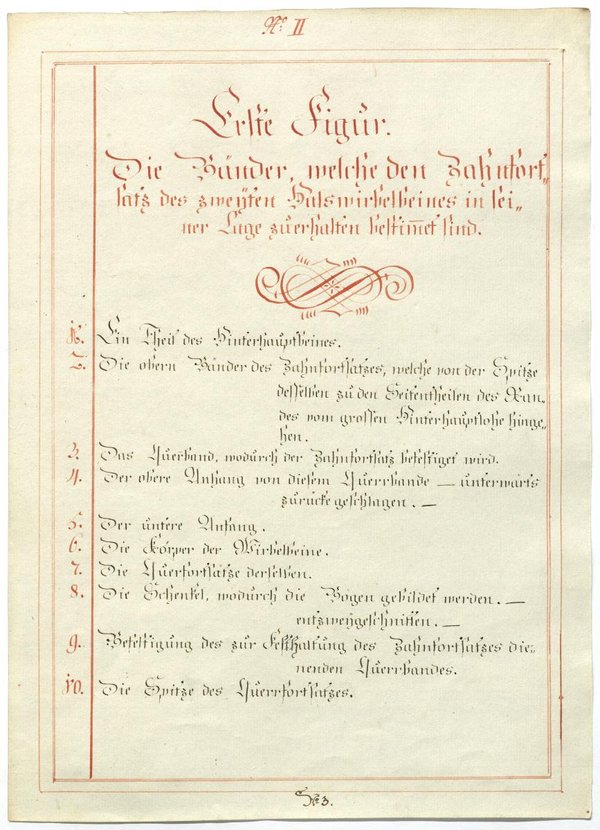 No. II
Erste Figur.
Die Bänder, welche den Zahnfort„
satz des zweÿten Halswirbelbeines in sei„
ner Lage zu erhalten bestim̅et sind.
1. Ein Theil des Hinterhauptbeines.
2. Die obern Bänder des Zahnfortsatzes, welche von der Spitze
desselben zu den Seitentheilen des Ran„
des vom grossen Hinterhauptsloche hinge„
hen.
3. Das Querband, wodurch der Zahnfortsatz befestiget wird.
4. Der obere Anhang von diesem Querrbande — unterwärts
zurücke geschlagen. —
5. Der untere Anfang.
6. Die Körper der Wirbelbeine.
7. Die Querfortsätze derselben.
8. Die Schenkel, wodurch die Bögen gebildet werden. —
entzweÿgeschnitten. —
9. Befestigung des zur Festhaltung des Zahnfortsatzes die„
nenden Querrbandes.
10. Die Spitze des Querrfortsatzes.
No. 3.